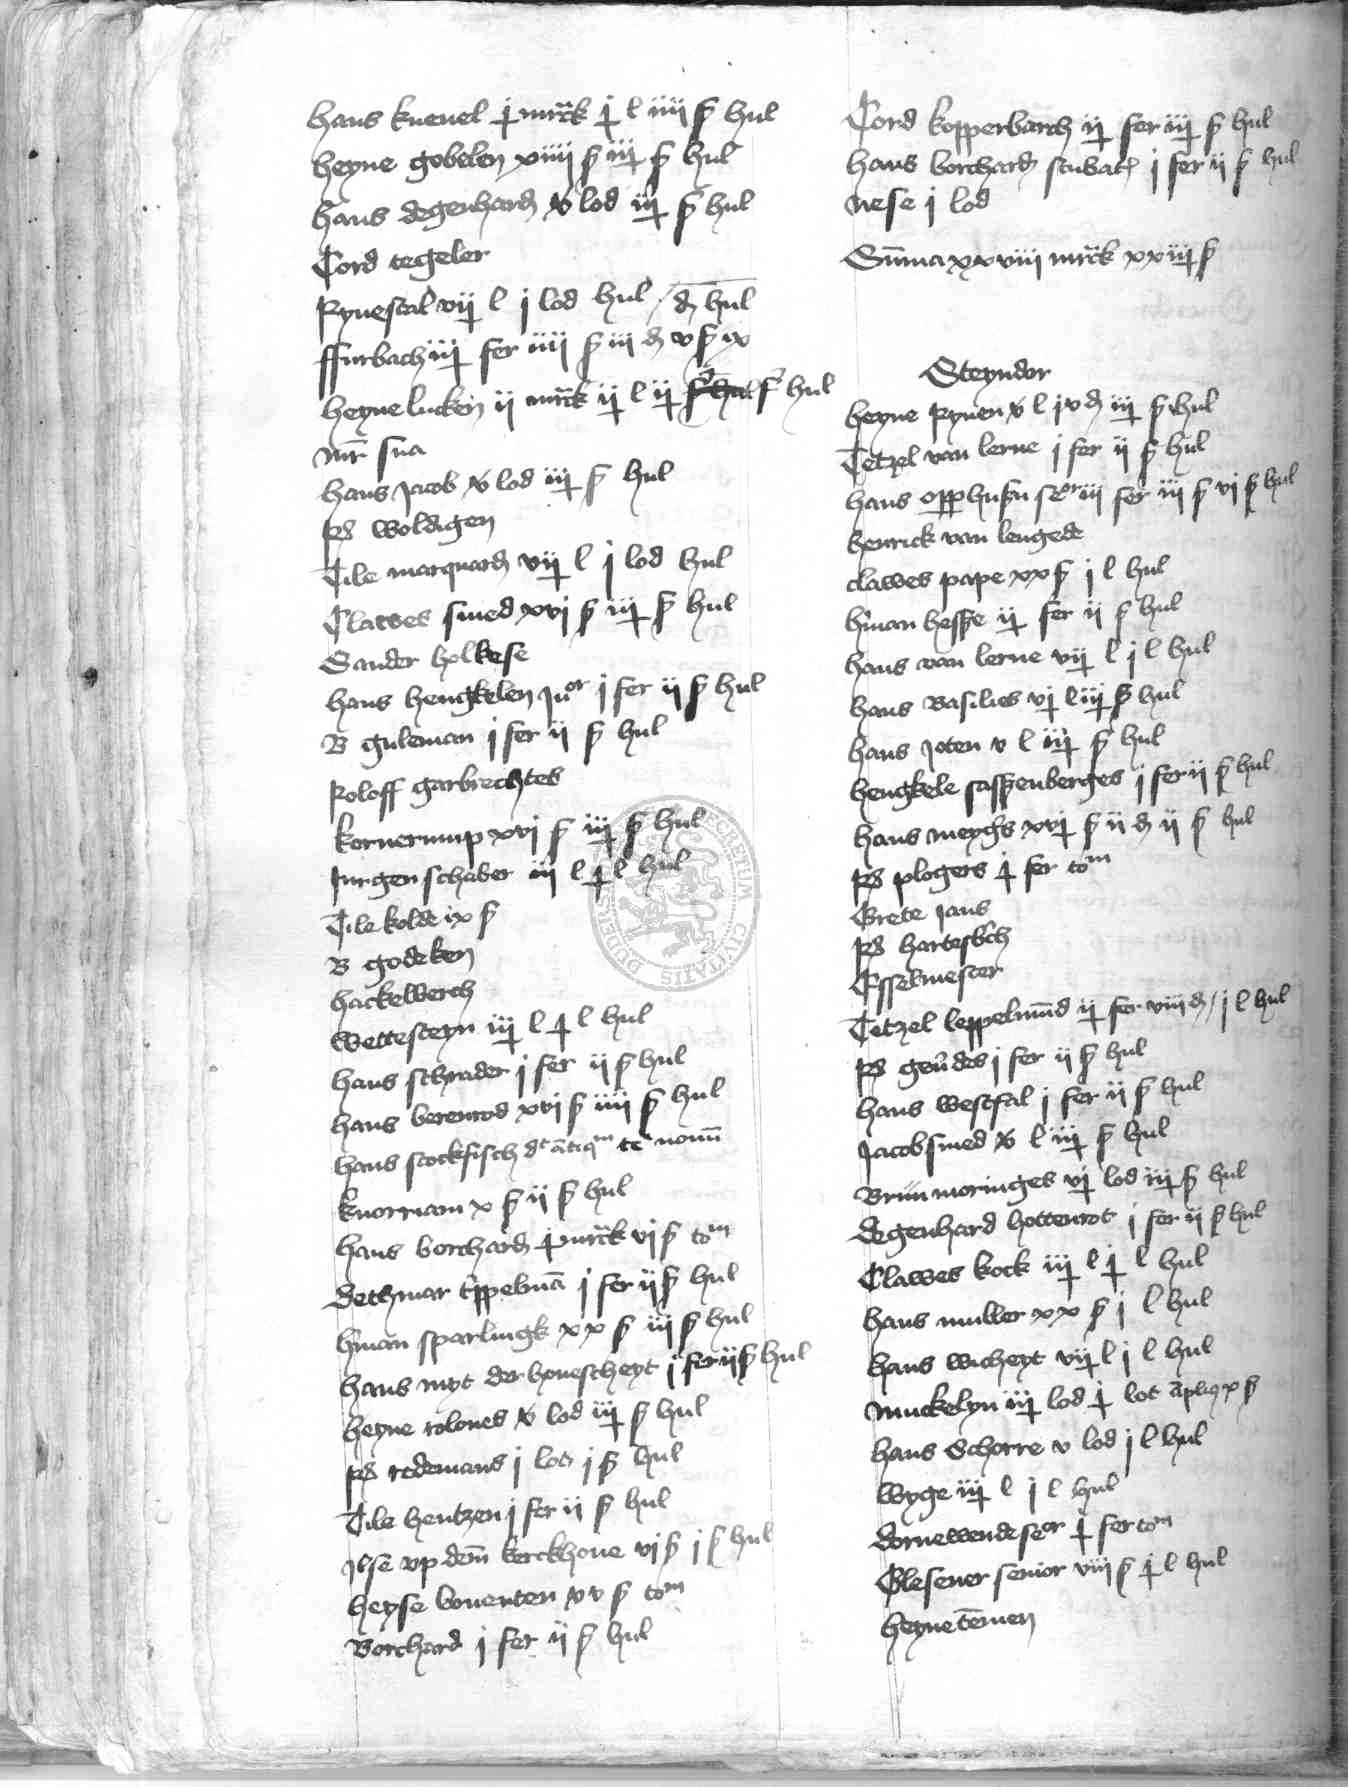 hans kneuel j mrck j l iiij ß hul
heyne gobelen xiiij ß iij ß hul
hans degenhard v lod iij ß hul
Cord tegeler
Rynestal vij l j lod hul / d hul
ffurbach iij fer iiij ß iij d v ß ix
heyne lucken ij mrck ij l ij ß hul
mr sua
hans Jacob v lod iij ß hul
Rs woldigen
Tile marquard vij l j lod hul
Clawes smed xvj ß iij ß hul
Sander holkese
hans hengkelen Juor j fer ij ß hul
B guleman j fer ij ß hul
Roloff garbrechtes
kornerump xvj ß iij ß hul
Jurgen schaber iij l j l hul
Tile kolde ix ß
B godeken
hackelberch
wettesteyn iij l j l hul
hans schrader j fer ij ß hul
hans berenrod xvj ß iiij ß hul
hans stockfisch dt antiqm te nouu
knorrnam x ß ij ß hul
hans borchard j mrck vj ß tom
dethmar tippelman j fer ij ß hul
hman sparlingk xx ß iij ß hul
hans myt der honescheyt j fer ij ß hul
heyne tolones v lod iij ß hul
Rs redemans j lot j ß hul
Tile hentzen j fer ij ß hul
Ilse vp dem kerckhoue vj ß j ß hul
heyse bouenten xv ß tom
Borchard j fer ij ß hul
Cord kopperbarch ij fer iij ß hul
hans borchard stubach j fer ij ß hul
nese j lod
Summa xxviij mrck xxiij ß
Steyndor
heyne Rynen v l j v d iij ß hul
Tetzel van lerne j fer ij ß hul
hans opphusen seor iij fer iij ß vj ß hul
henrick van lengede
clawes pape xx ß j l hul
hman hesse ij fer ij ß hul
hans van lerne vij l j l hul
hans Basilies vj l iij ß hul
hans Joten v l iij ß hul
hengkele sassenberges j fer ij ß hul
hans meyghs xvj ß ij d ij ß hul
Rs plogers j fer tom
Grete Jans
Rs hartesbch
Esselmester
Tetzel leppelmund ij fer viij d / j l hul
Rs geudes j fer ij ß hul
hans westfal j fer ij ß hul
Jacob smed v l iij ß hul
Brun moringes vj lod iij ß hul
degenhard hottenrot j fer ij ß hul
Clawes kock iij l j l hul
hans muller xx ß j l hul
hans wicheyt vij l j l hul
muckelyn iij lod j lot x ß
hans Schorre v lod j l hul
wyge iij l j l hul
dornewende seor j fer tom
Glesener senior viij ß j l hul
heyne temen